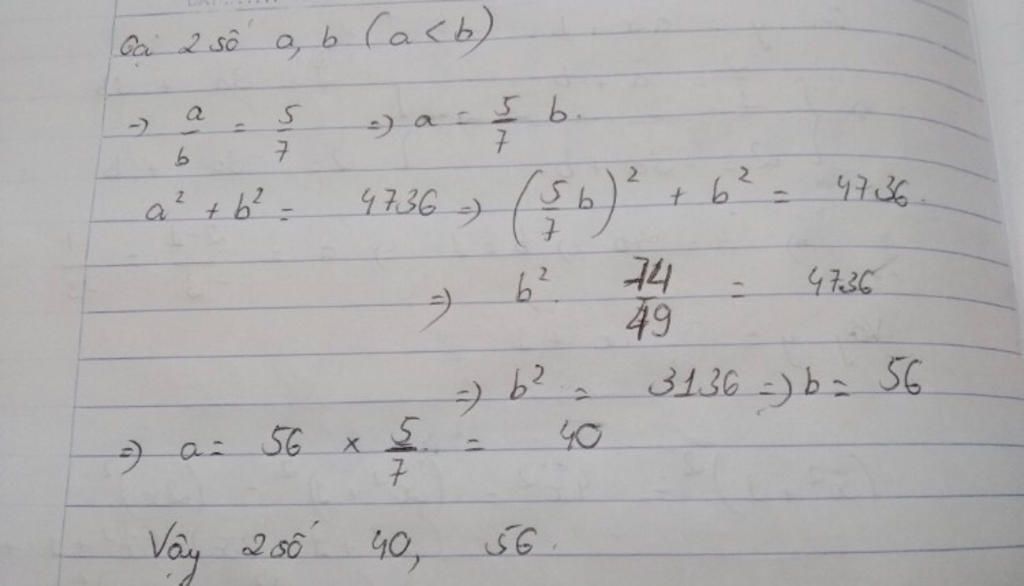 Gọi 2 số a, b (a < b)
→ a/b = 5/7 => a = 5/7 b.
a² + b² = 4736 => (5/7 b)² + b² = 4736.
=> b². 74/49 = 4736
=> b² = 3136 => b = 56
=> a = 56 x 5/7 = 40
Vậy 2 số 40, 56.